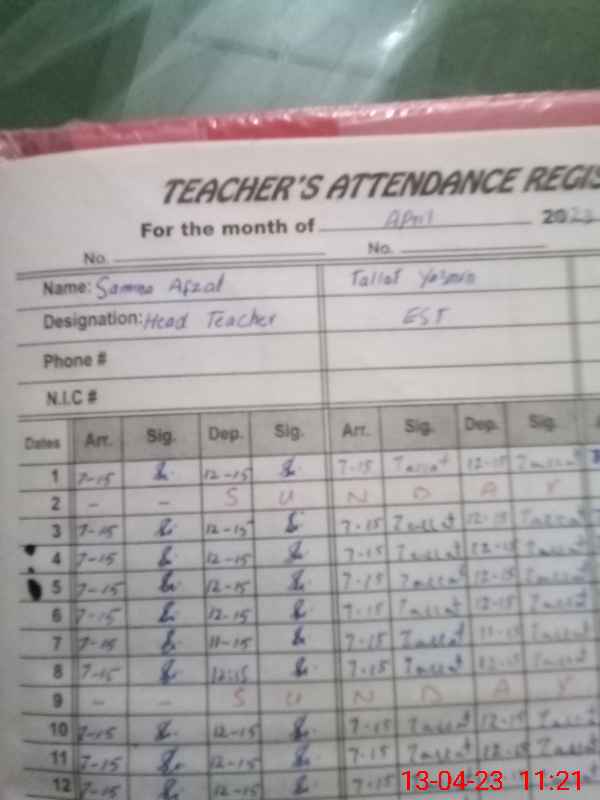 TEACHER'S ATTENDANCE REGIS
For the month of April 2023
No. No.
Name: Samina Afzal Tallat Yasmin
Designation: Head Teacher EST
Phone #
N.I.C #
Dates Arr. Sig. Dep. Sig. Arr. Sig. Dep. Sig.
1 7-15 12-15 7-15 Tallat 12-15 Tallat
2 - - S U N D A Y
3 7-15 12-15 7-15 Tallat 12-15 Tallat
4 7-15 12-15 7-15 Tallat 12-15 Tallat
5 7-15 12-15 7-15 Tallat 12-15 Tallat
6 7-15 12-15 7-15 Tallat 12-15 Tallat
7 7-15 11-15 7-15 Tallat 11-15 Tallat
8 7-15 12-15 7-15 Tallat 12-15 Tallat
9 - - S U N D A Y
10 7-15 12-15 7-15 Tallat 12-15 Tallat
11 7-15 12-15 7-15 Tallat 12-15 Tallat
12 7-15 12-15 7-15
13-04-23 11:21